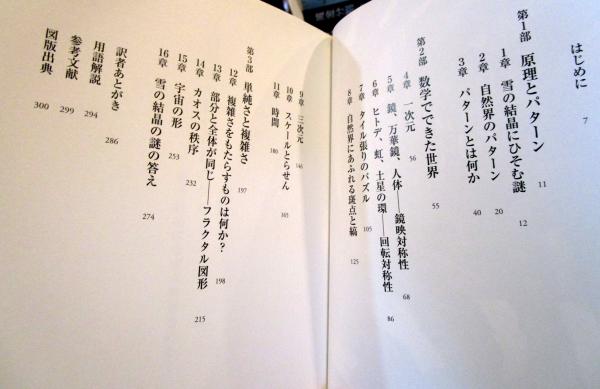 はじめに 7
第1部 原理とパターン 11
1章 雪の結晶にひそむ謎 12
2章 自然界のパターン 20
3章 パターンとは何か 40
第2部 数学でできた世界 55
4章 一次元 56
5章 鏡、万華鏡、人体――鏡映対称性 68
6章 ヒトデ、虹、土星の環――回転対称性 86
7章 タイル張りのパズル 105
8章 自然界にあふれる斑点と縞 125
9章 三次元 146
10章 スケールとらせん 165
11章 時間 180
第3部 単純さと複雑さ 197
12章 複雑さをもたらすものは何か? 198
13章 部分と全体が同じ――フラクタル図形 215
14章 カオスの秩序 232
15章 宇宙の形 253
16章 雪の結晶の謎の答え 274
訳者あとがき 286
用語解説 294
参考文献 299
図版出典 300